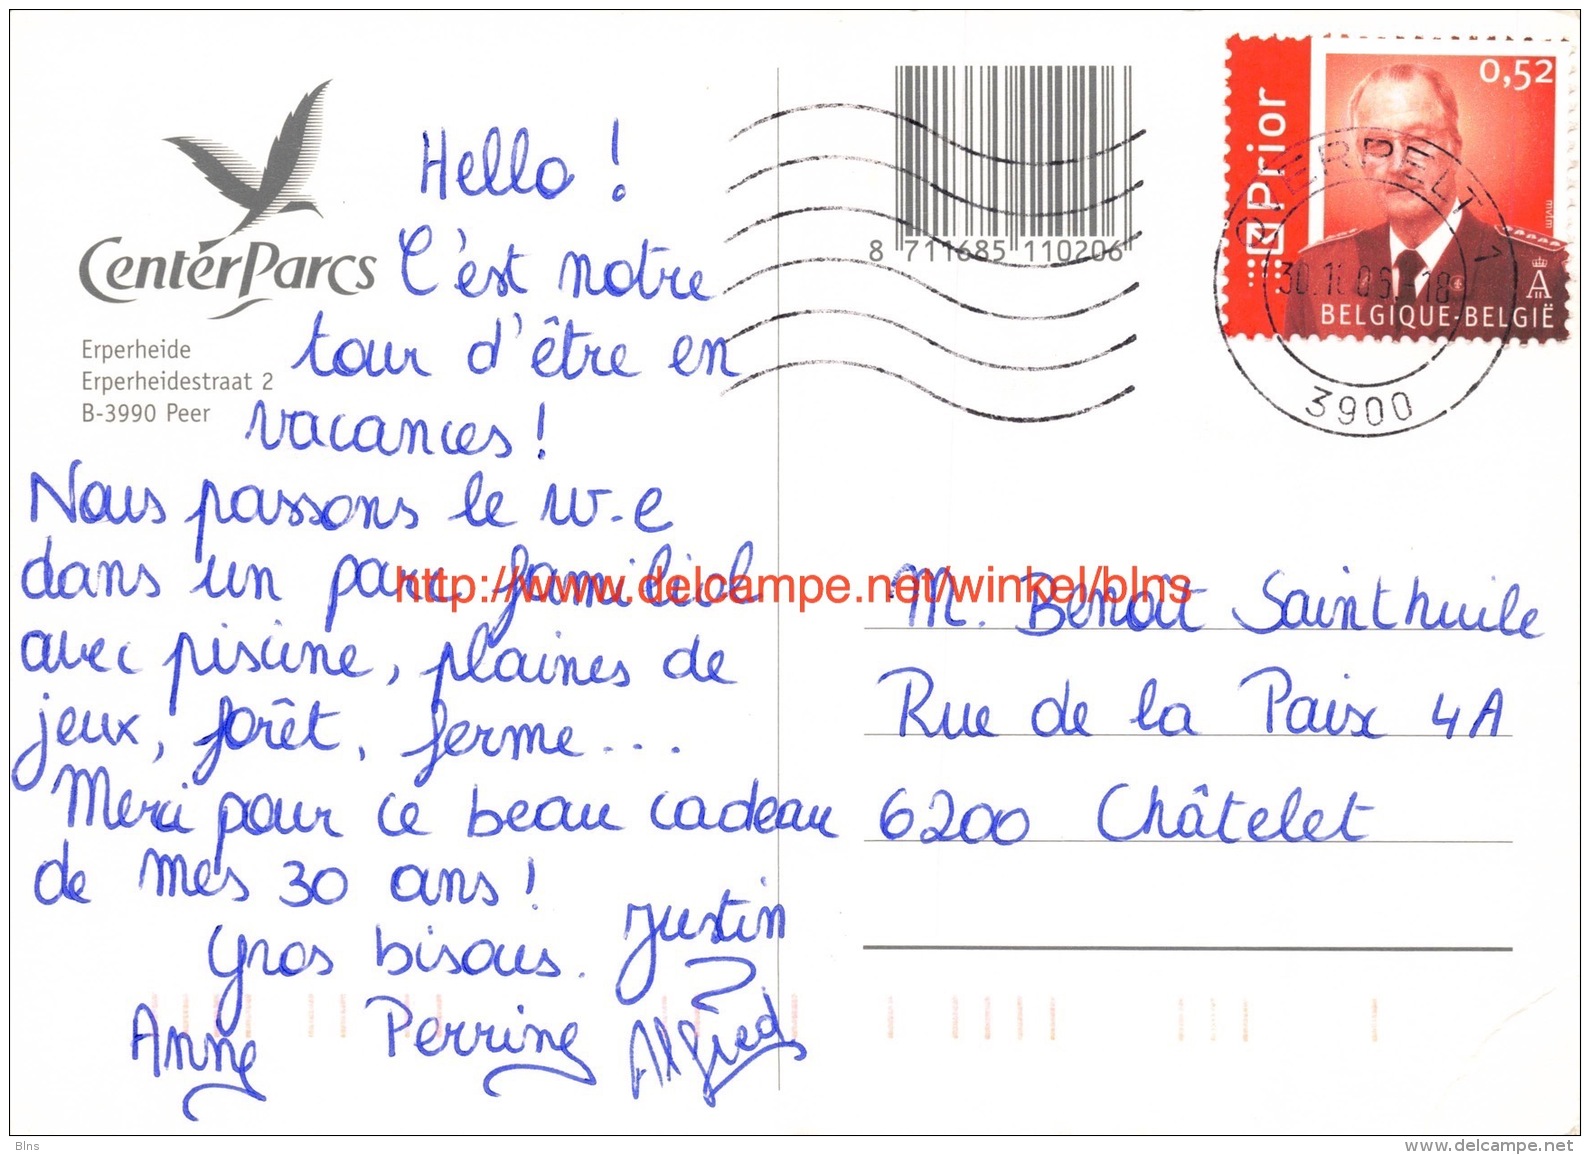 CenterParcs
Erperheide
Erperheidestraat 2
B-3990 Peer
Hello !
C'est notre
tour d'être en
vacances !
Nous passons le w-e
dans un parc familial
avec piscine, plaines de
jeux, forêt, ferme...
Merci pour ce beau cadeau
de mes 30 ans !
Gros bisous.
Justin
Anne
Perrine
Alfred
8 711685 110206
Prior
0,52
mvtm
BELGIQUE-BELGIË
OVERPELT 1
3900
http://www.delcampe.net/winkel/blns
M. Benoît Sainthuile
Rue de la Paix 4A
6200 Châtelet
Blns
www.delcampe.net